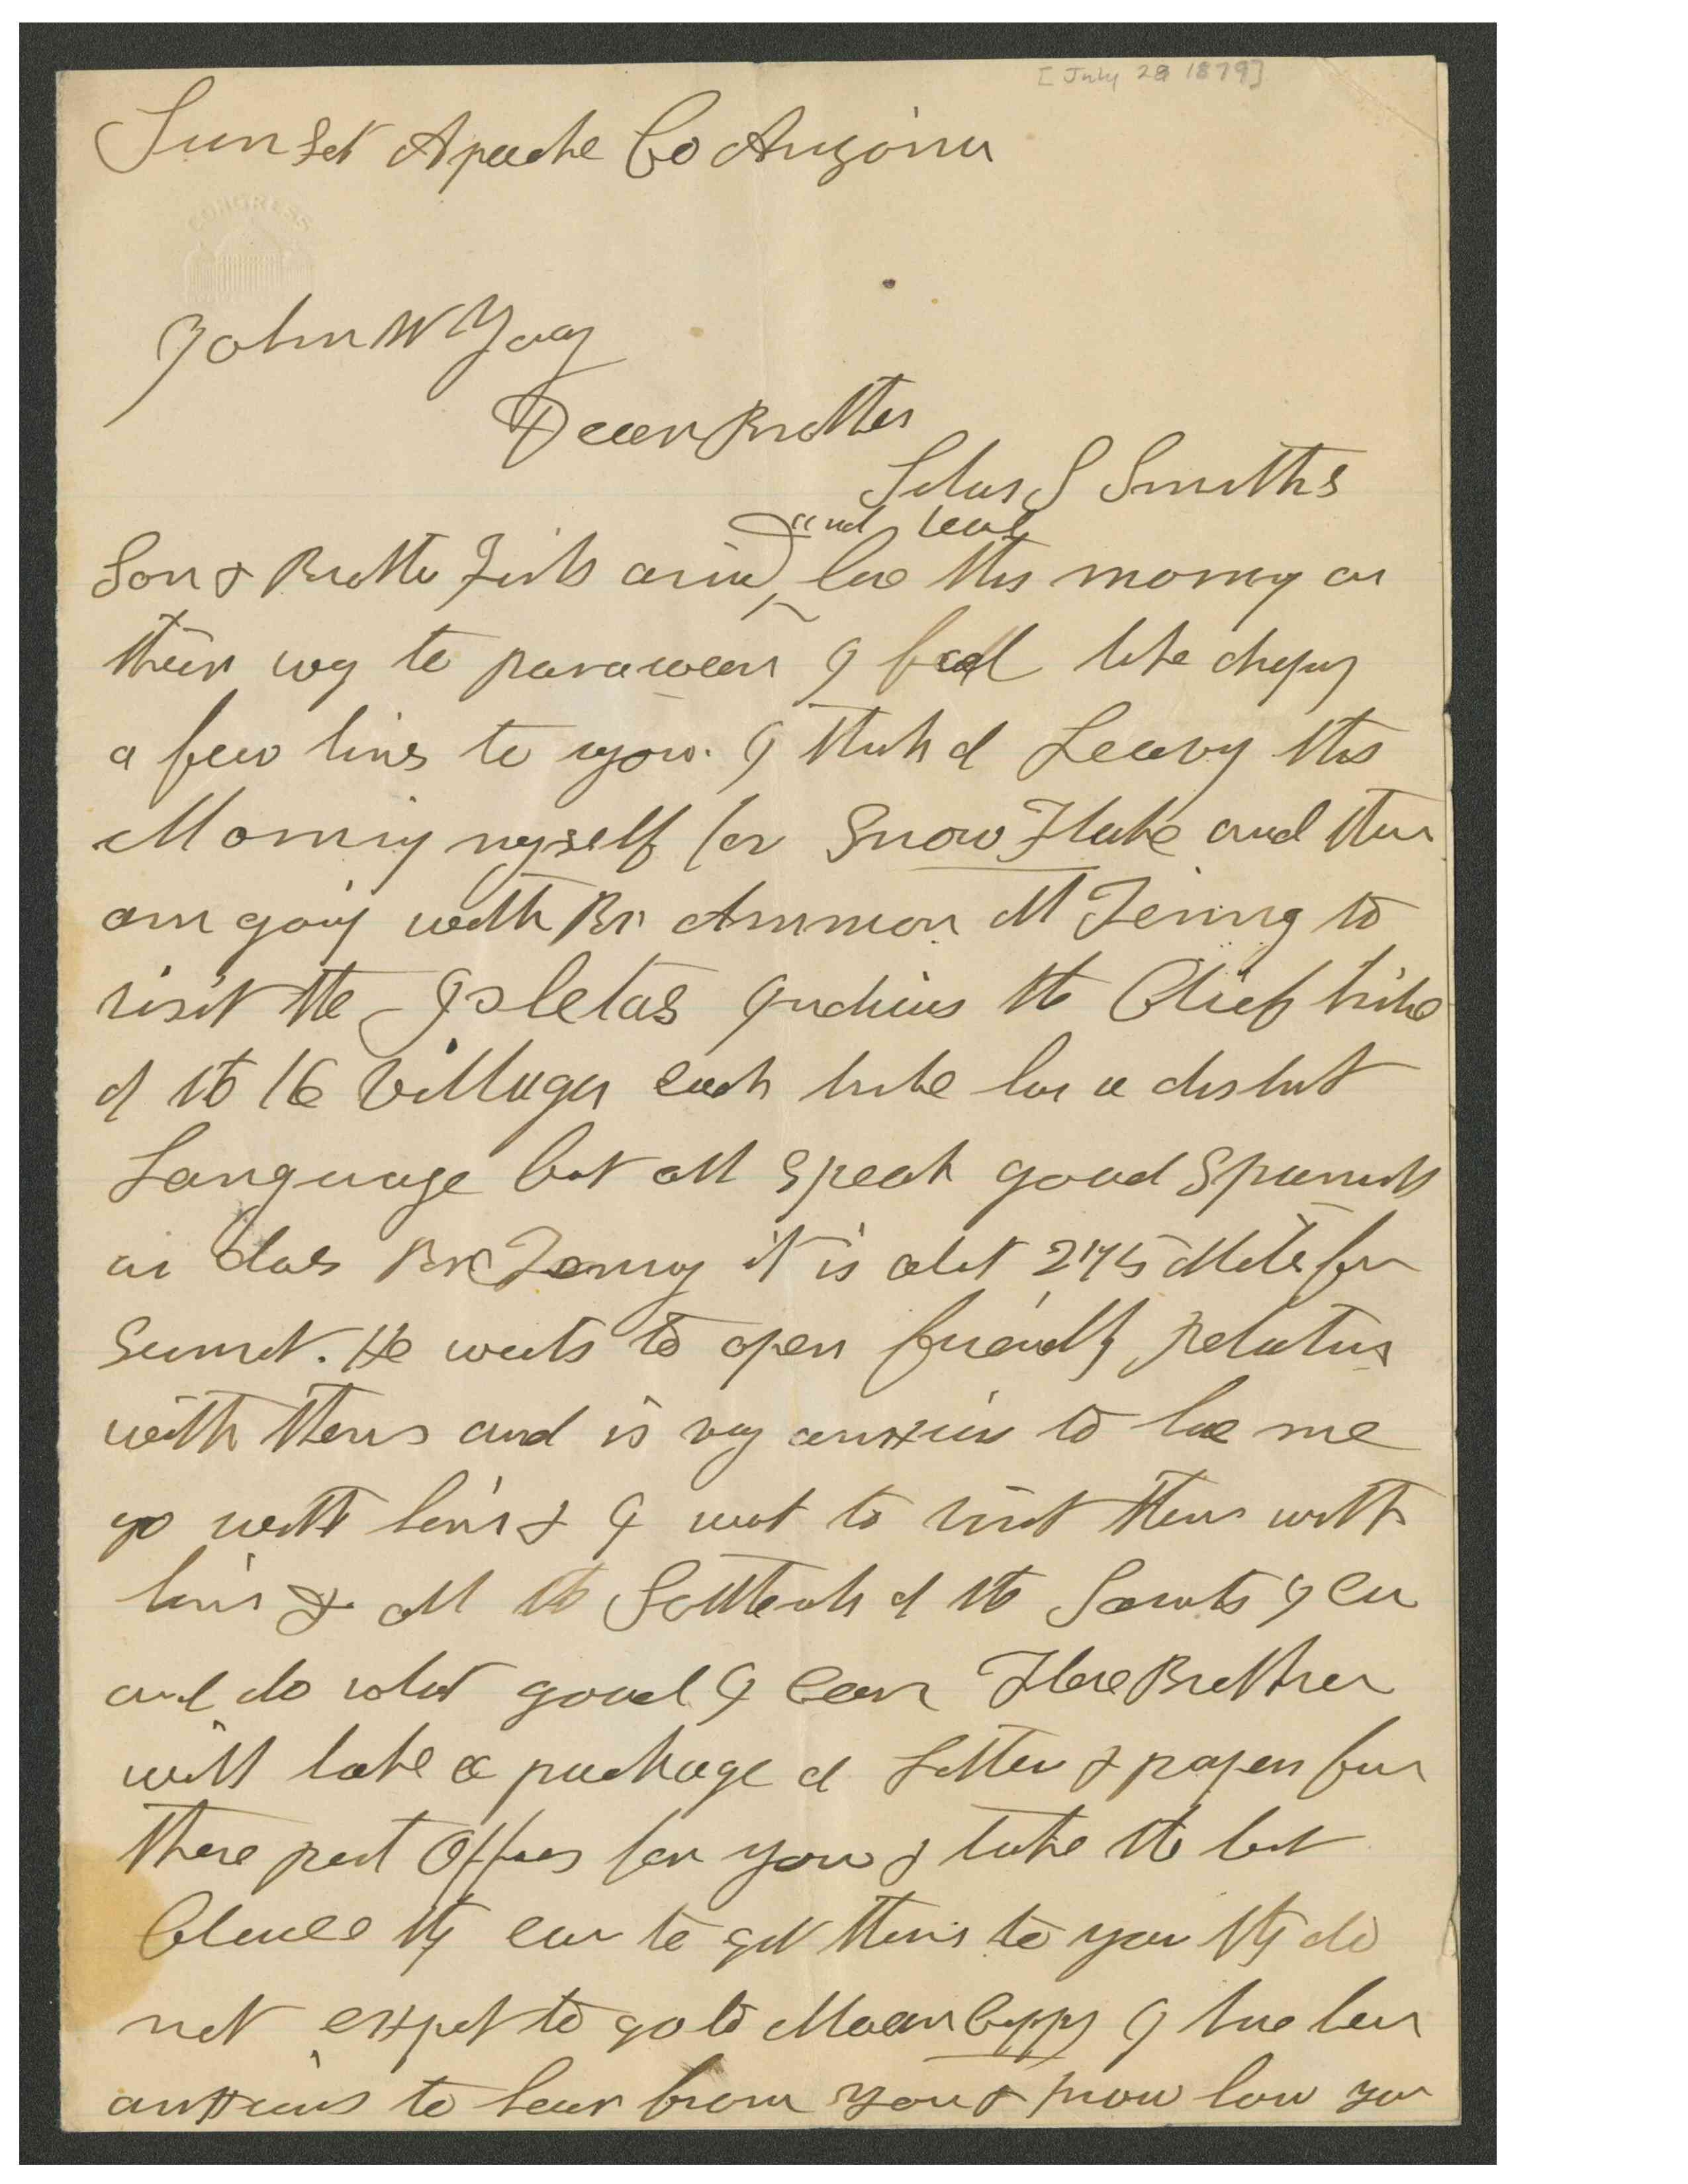 [July 28 1879]
Sunset Apache Co Arizona
CONGRESS
John W Young
Dear Brother
Silas S Smiths
and leave
Son & Brother arived here this morning on
their way to parawan I feel like droping
a few lines to you. I think of Leaving this
Morning myself for Snow Flake and then
am going with Br Ammon M Tenney to
visit the Isletas Indians the Chief tribe
of the 16 Villages each tribe has a distinct
Language but all Speak good Spanish
as does Br Tenney it is about 275 Miles from
Sunset. He wants to open friendly relations
with them and is very anxious to have me
go with him & I want to visit them with
him & all the Settlements of the Saints I can
and do what good I can These Brethren
will take a package of Letters & papers from
there post Offices for you & take the best
Chance they can to get them to you they do
not expect to go to Moan Coppy I have been
anxious to hear from you & know how you